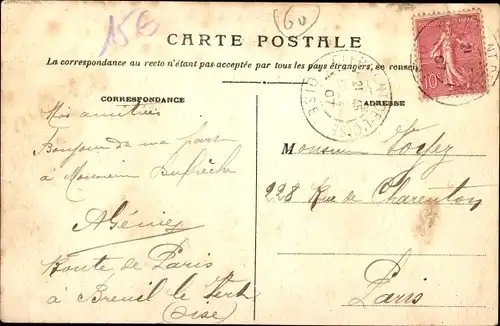 15€
60
CARTE POSTALE
La correspondance au recto n'étant pas acceptée par tous les pays étrangers, se renseig
CORRESPONDANCE
ADRESSE
10
OISE
21
07
Mes amitiés
Bonjour de ma part
à Monsieur
Génie
Route de Paris
à Breuil le Vert
(Oise)
Monsieur
228 Rue de Charenton
Paris